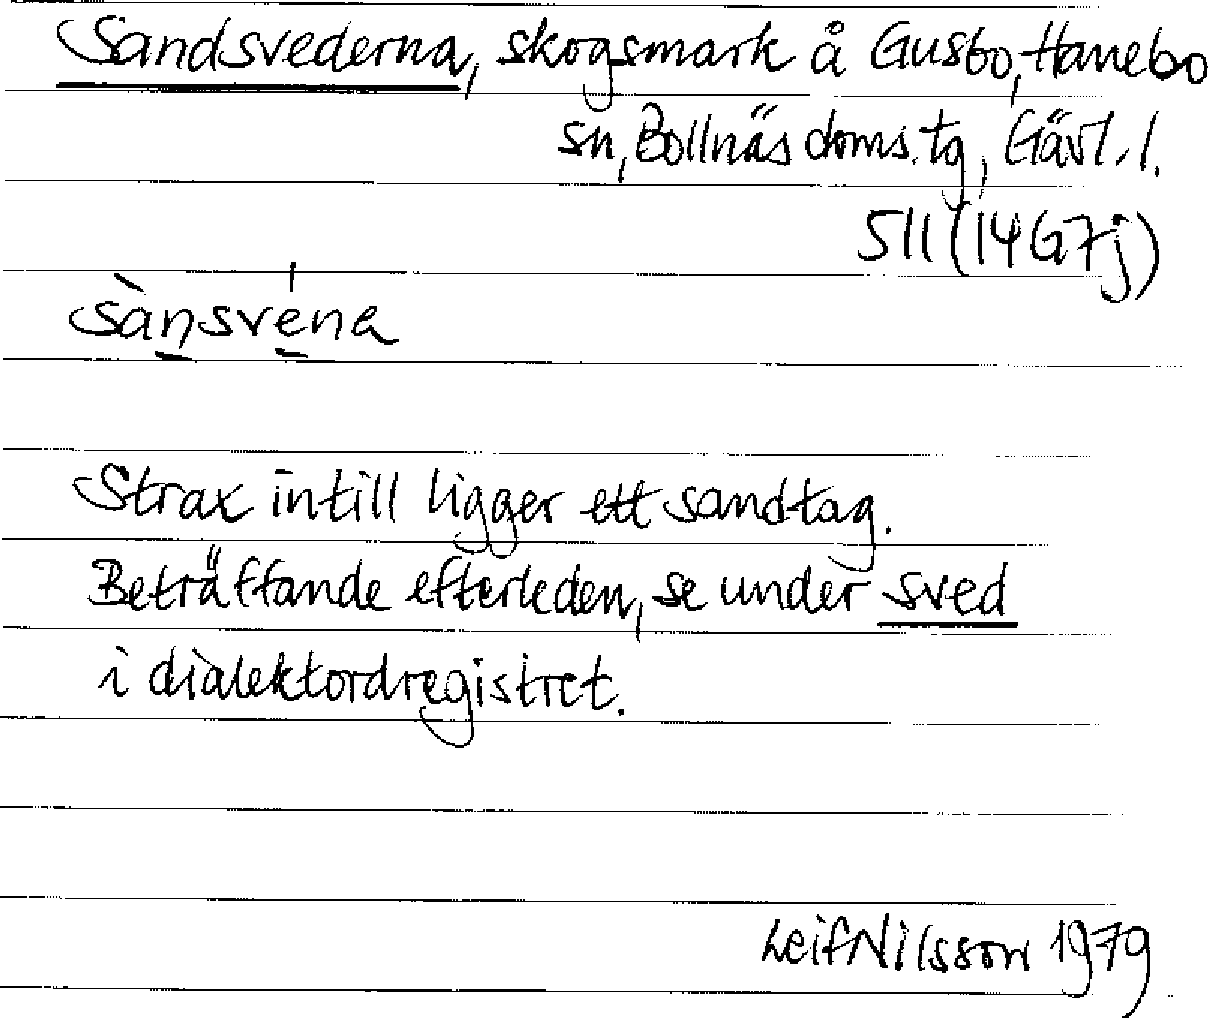 Sandsvederna, skogsmark å Gusbo, Hanebo
sn, Bollnäs doms.tg, Gävl. l.
511 (14G7j)
sànsvéna
Strax intill ligger ett sandtag.
Beträffande efterleden, se under sved
i dialektordregistret.
Leif Nilsson 1979